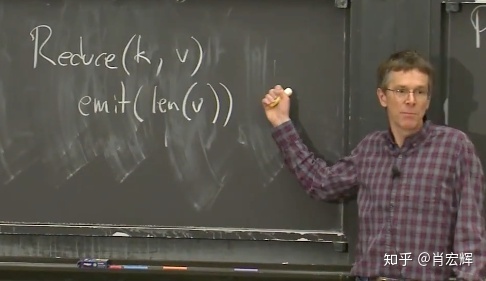 Reduce(k, v)
emit(len(v))
知乎 @肖宏辉